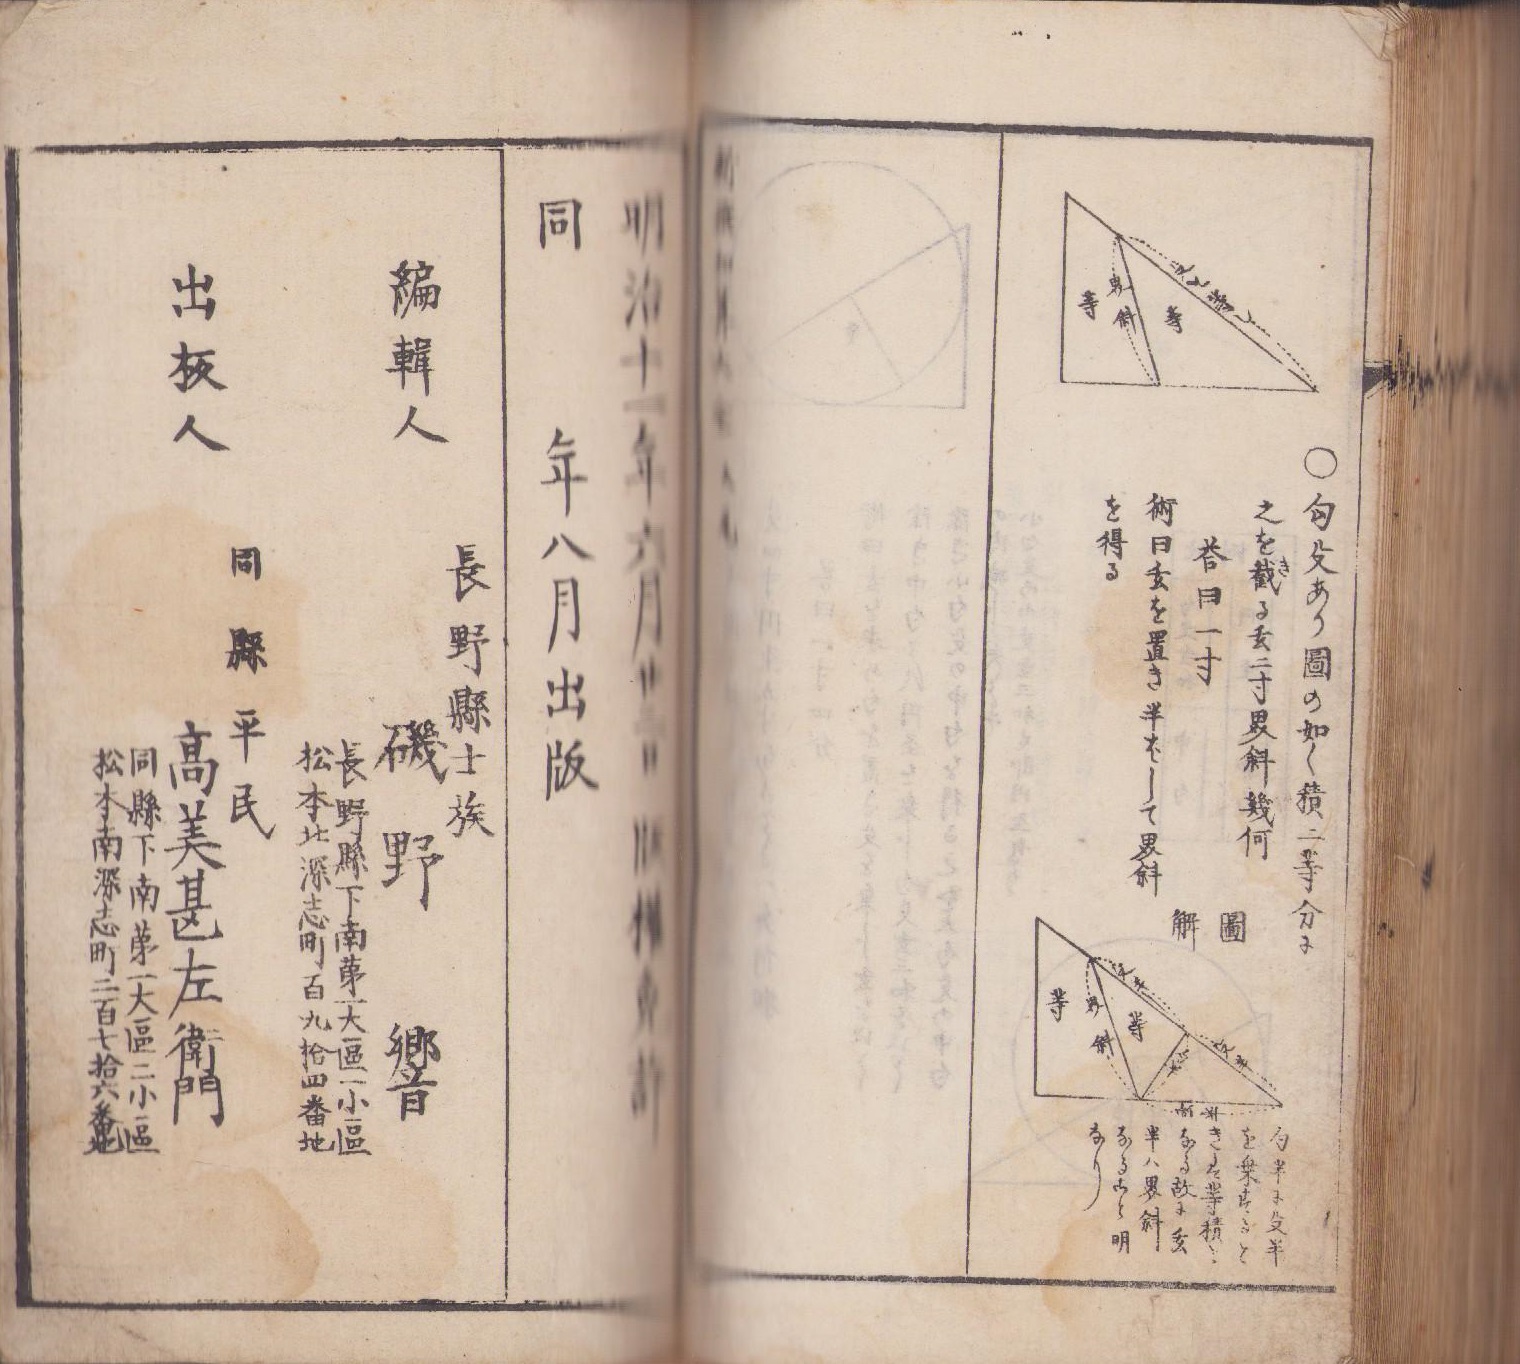 等
界斜
等
○勾殳あり圖の如く積二等分ニ
之を截る玄二寸界斜幾何
き
荅曰一寸
術曰玄を置き半にして界斜
を得る
圖解
等
界斜
等
勾半ニ殳半
を乗する
半ハ界斜
なる
なり
明治十一年六月 版権免許
同年八月出版
編輯人
長野縣士族
磯野響
長野縣下南第一大區一小區
松本北深志町百九拾四番地
出板人
同縣平民
髙美甚左衛門
同縣下南第一大區二小區
松本南深志町二百七拾六番地